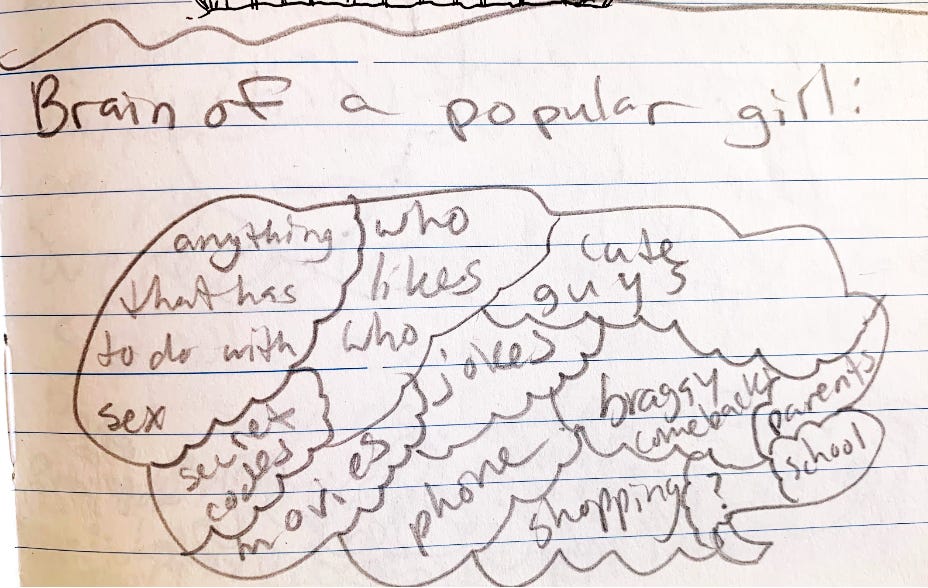 Brain of a popular girl:
anything
that has
to do with
sex
who
likes
who
cute
guys
jokes
secret
codes
movies
phone
braggy
comebacks
parents
school
shopping
?